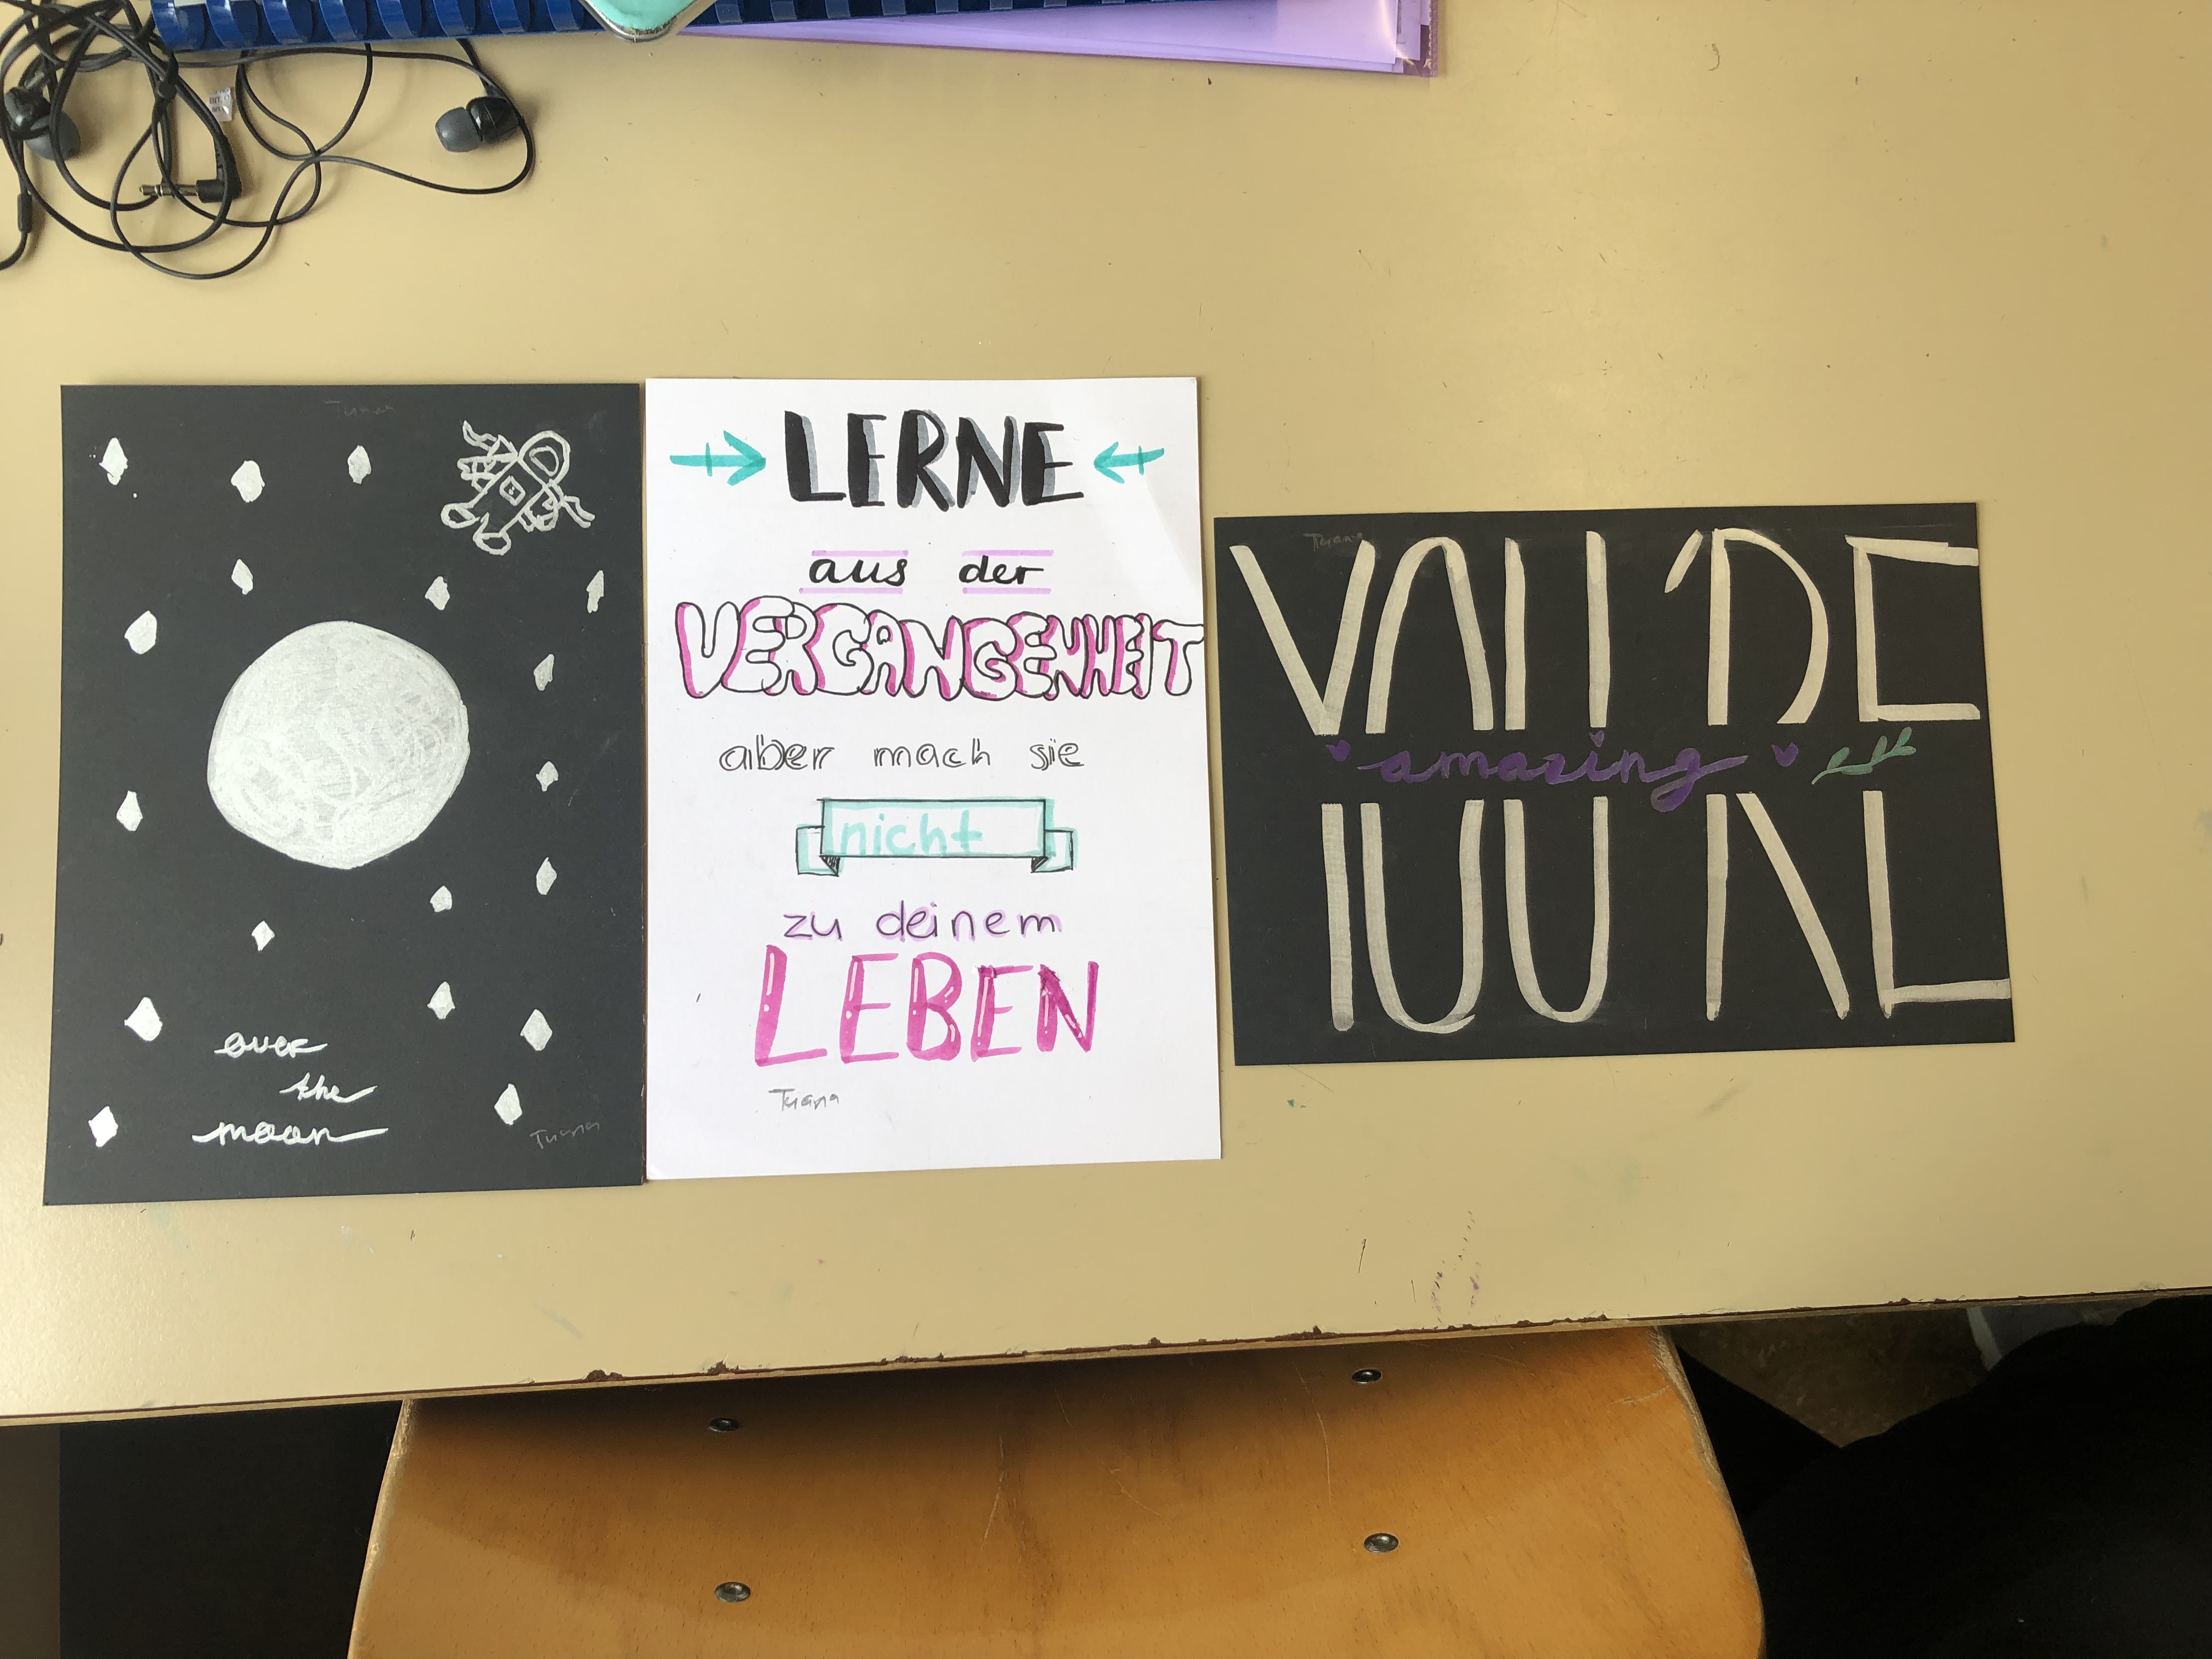 Tuana
over
the
moon
Tuana
LERNE
aus der
VERGANGENHEIT
aber mach sie
nicht
zu deinem
LEBEN
Tuana
Tuana
YOU'RE
amazing